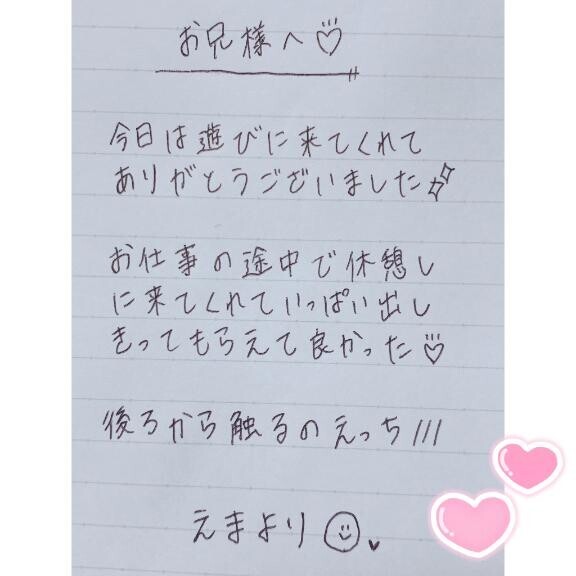 お兄様へ♡
今日は遊びに来てくれて
ありがとうございました✨
お仕事の途中で休憩し
に来てくれていっぱい出し
きってもらえて良かった♡
後ろから触るのえっち///
えまより☺♥